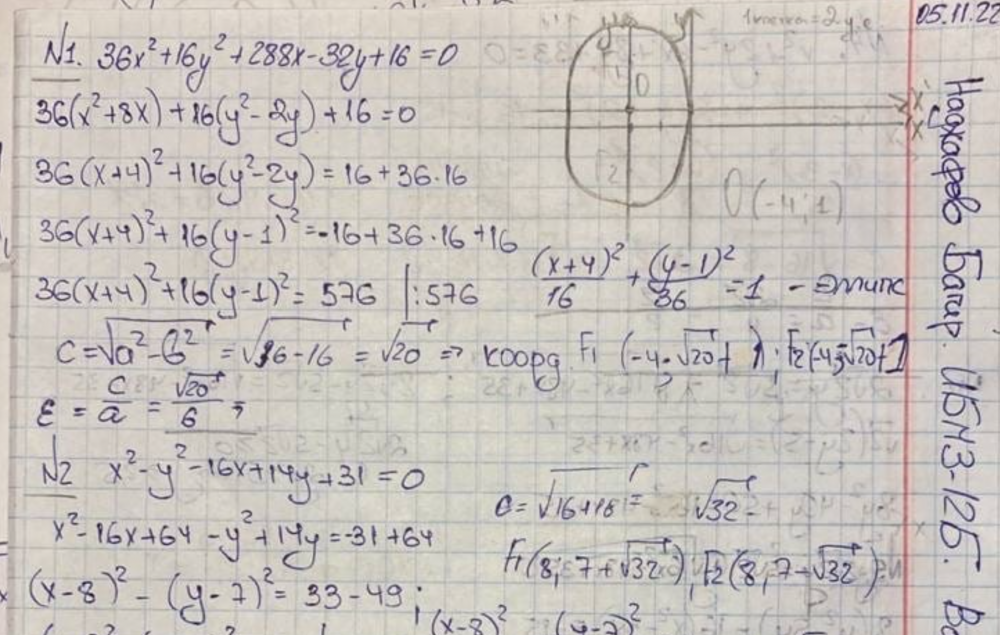 05.11.22
1 клетка = 2 у.е.
N1. 36x²+16y²+288x-32y+16=0
36(x²+8x)+16(y²-2y)+16=0
36(x+4)²+16(y²-2y)=16+36·16
36(x+4)²+16(y-1)²=-16+36·16+16
O(-4;1)
36(x+4)²+16(y-1)²=576 |:576
(x+4)²/16 + (y-1)²/36 = 1 - Эллипс
c=√a²-b² = √36-16 = √20 => коорд. F1 (-4;√20+1); F2(-4;-√20+1)
ε = c/a = √20/6
N2 x²-y²-16x+14y+31=0
c=√16+16= √32
x²-16x+64-y²+14y=-31+64
F1(8;7+√32) F2(8,7-√32)
(x-8)²-(y-7)²=33-49;
(x-8)² (y-7)²
Багир. ИБМ3-12Б.